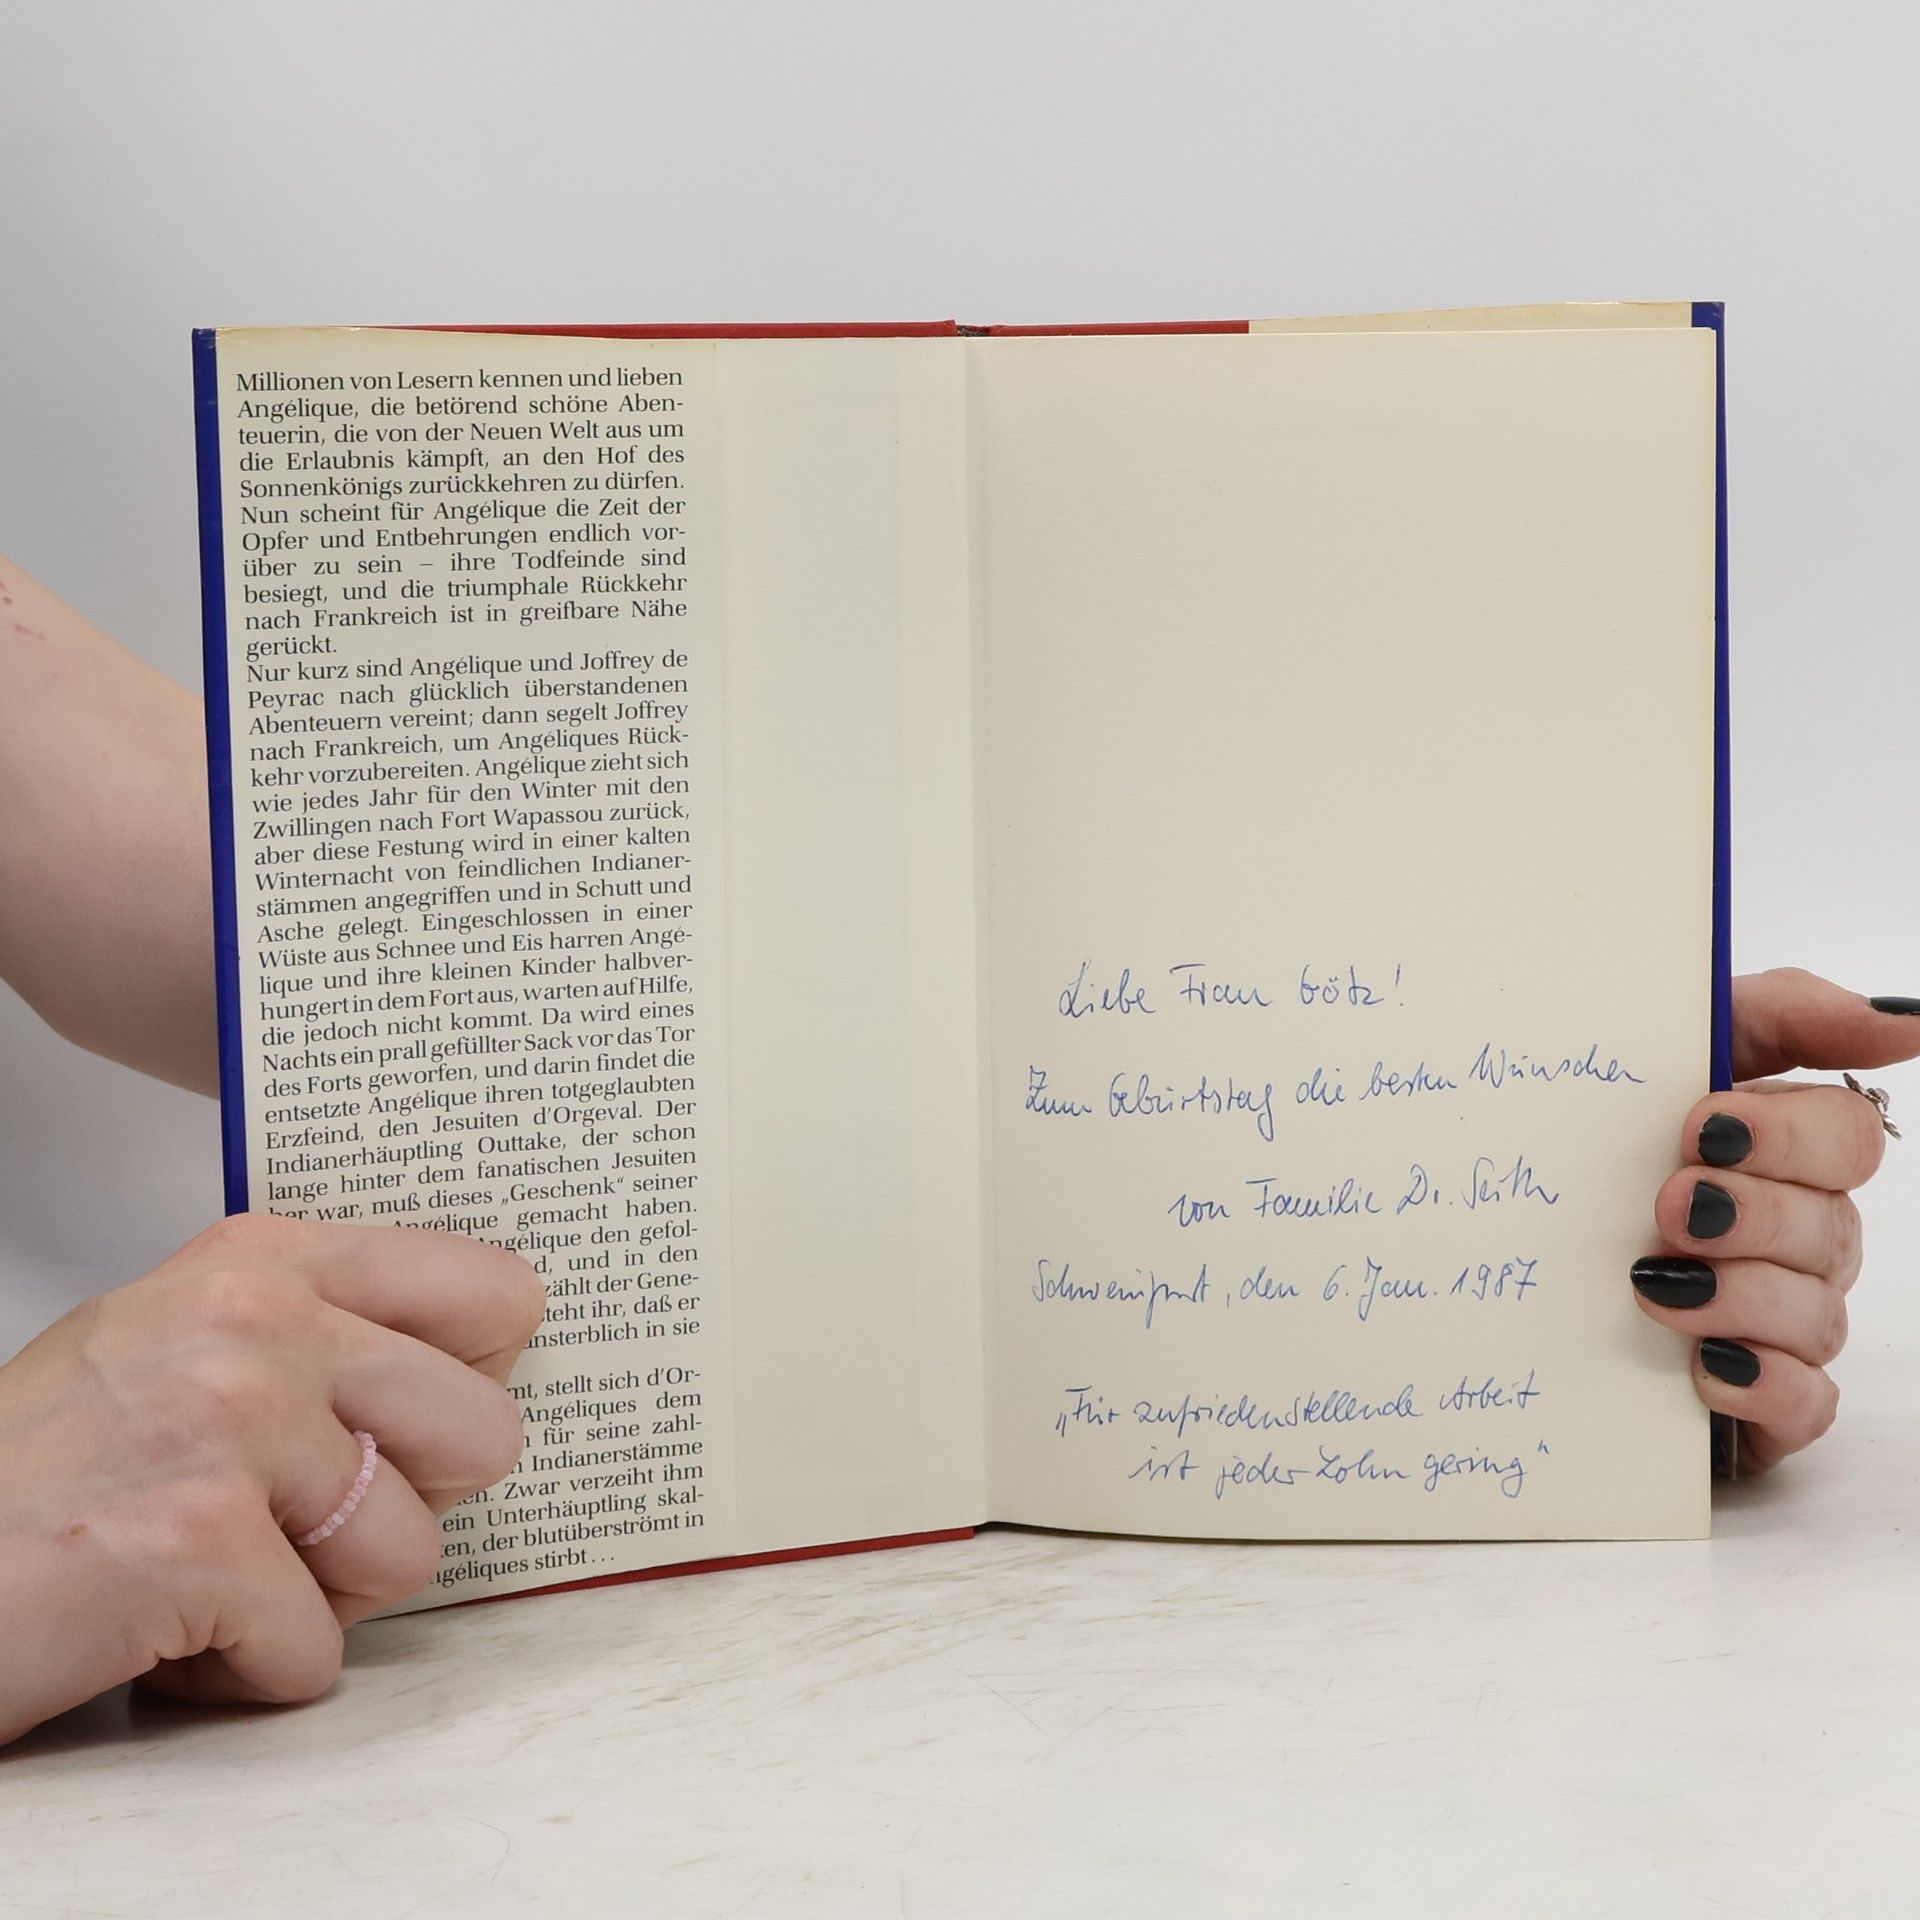 Millionen von Lesern kennen und lieben
Angélique, die betörend schöne Aben-
teuerin, die von der Neuen Welt aus um
die Erlaubnis kämpft, an den Hof des
Sonnenkönigs zurückkehren zu dürfen.
Nun scheint für Angélique die Zeit der
Opfer und Entbehrungen endlich vor-
über zu sein – ihre Todfeinde sind
besiegt, und die triumphale Rückkehr
nach Frankreich ist in greifbare Nähe
gerückt.
Nur kurz sind Angélique und Joffrey de
Peyrac nach glücklich überstandenen
Abenteuern vereint; dann segelt Joffrey
nach Frankreich, um Angéliques Rück-
kehr vorzubereiten. Angélique zieht sich
wie jedes Jahr für den Winter mit den
Zwillingen nach Fort Wapassou zurück,
aber diese Festung wird in einer kalten
Winternacht von feindlichen Indianer-
stämmen angegriffen und in Schutt und
Asche gelegt. Eingeschlossen in einer
Wüste aus Schnee und Eis harren Angé-
lique und ihre kleinen Kinder halbver-
hungert in dem Fort aus, warten auf Hilfe,
die jedoch nicht kommt. Da wird eines
Nachts ein prall gefüllter Sack vor das Tor
des Forts geworfen, und darin findet die
entsetzte Angélique ihren totgeglaubten
Erzfeind, den Jesuiten d'Orgeval. Der
Indianerhäuptling Outtake, der schon
lange hinter dem fanatischen Jesuiten
her war, muß dieses „Geschenk“ seiner
Angélique gemacht haben.
Angélique den gefol-
d, und in den
zählt der Gene-
steht ihr, daß er
unsterblich in sie
mt, stellt sich d'Or-
Angéliques dem
n für seine zahl-
n Indianerstämme
en. Zwar verzeiht ihm
ein Unterhäuptling skal-
ten, der blutüberströmt in
ngéliques stirbt...
Liebe Frau Götz!
Zum Geburtstag die besten Wünschen
von Familie Dr.
Schweinfurt, den 6. Jan. 1987
„Für zufriedenstellende Arbeit
ist jeder Lohn gering“